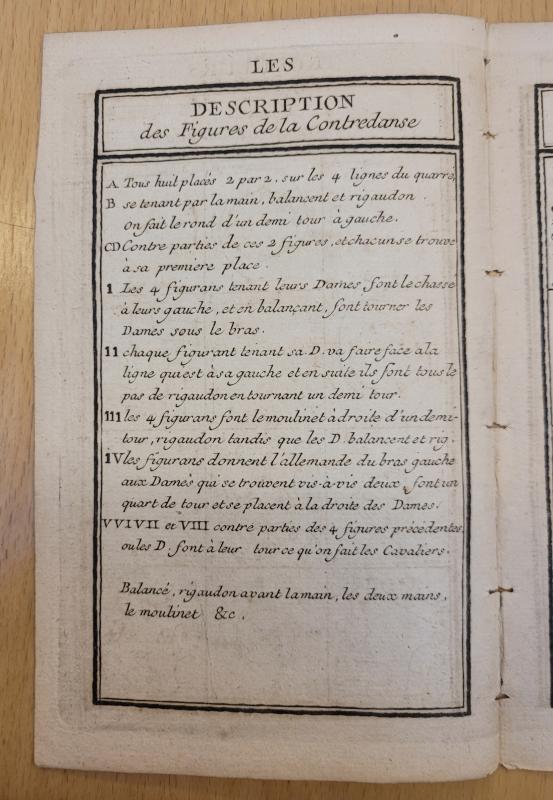 LES
DESCRIPTION
des Figures de la Contredanse
A Tous huit placés 2 par 2, sur les 4 lignes du quarré,
B se tenant par la main, balancent et rigaudon.
On fait le rond d'un demi tour à gauche.
CD Contre parties de ces 2 figures, et chacun se trouve
à sa premiere place.
1 Les 4 figurans tenant leurs Dames, font le chassé
à leurs gauche, et en balançant, font tourner les
Dames sous le bras.
11 chaque figurant tenant sa D. va faire face à la
ligne qui est à sa gauche et en suite ils font tous le
pas de rigaudon en tournant un demi tour.
111 les 4 figurans font le moulinet à droite d'un demi-
tour, rigaudon tandis que les D. balancent et rig.
IV les figurans donnent l'allemande du bras gauche
aux Dames qui se trouvent vis-à-vis deux, font un
quart de tour et se placent à la droite des Dames.
V VI VII et VIII contre parties des 4 figures précédentes,
ou les D. font à leur tour ce qu'on fait les Cavaliers.
Balancé, rigaudon avant la main, les deux mains,
le moulinet &c.